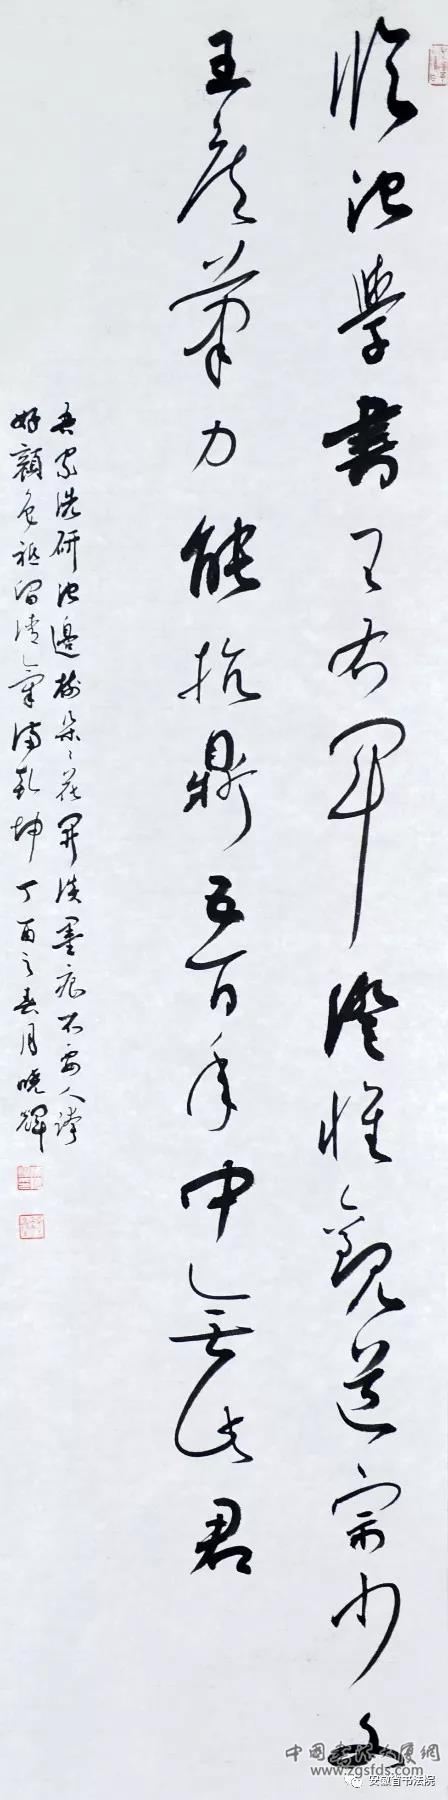 临池学书王右军澄怀观道宗少文
王侯笔力能抗鼎五百年中无此君
吾家洗研池边树朵朵花开淡墨痕不要人夸
好颜色祗留清气满乾坤丁酉之春月晓辉
中国书法大厦网
www.zgsfds.com
安徽省书法院